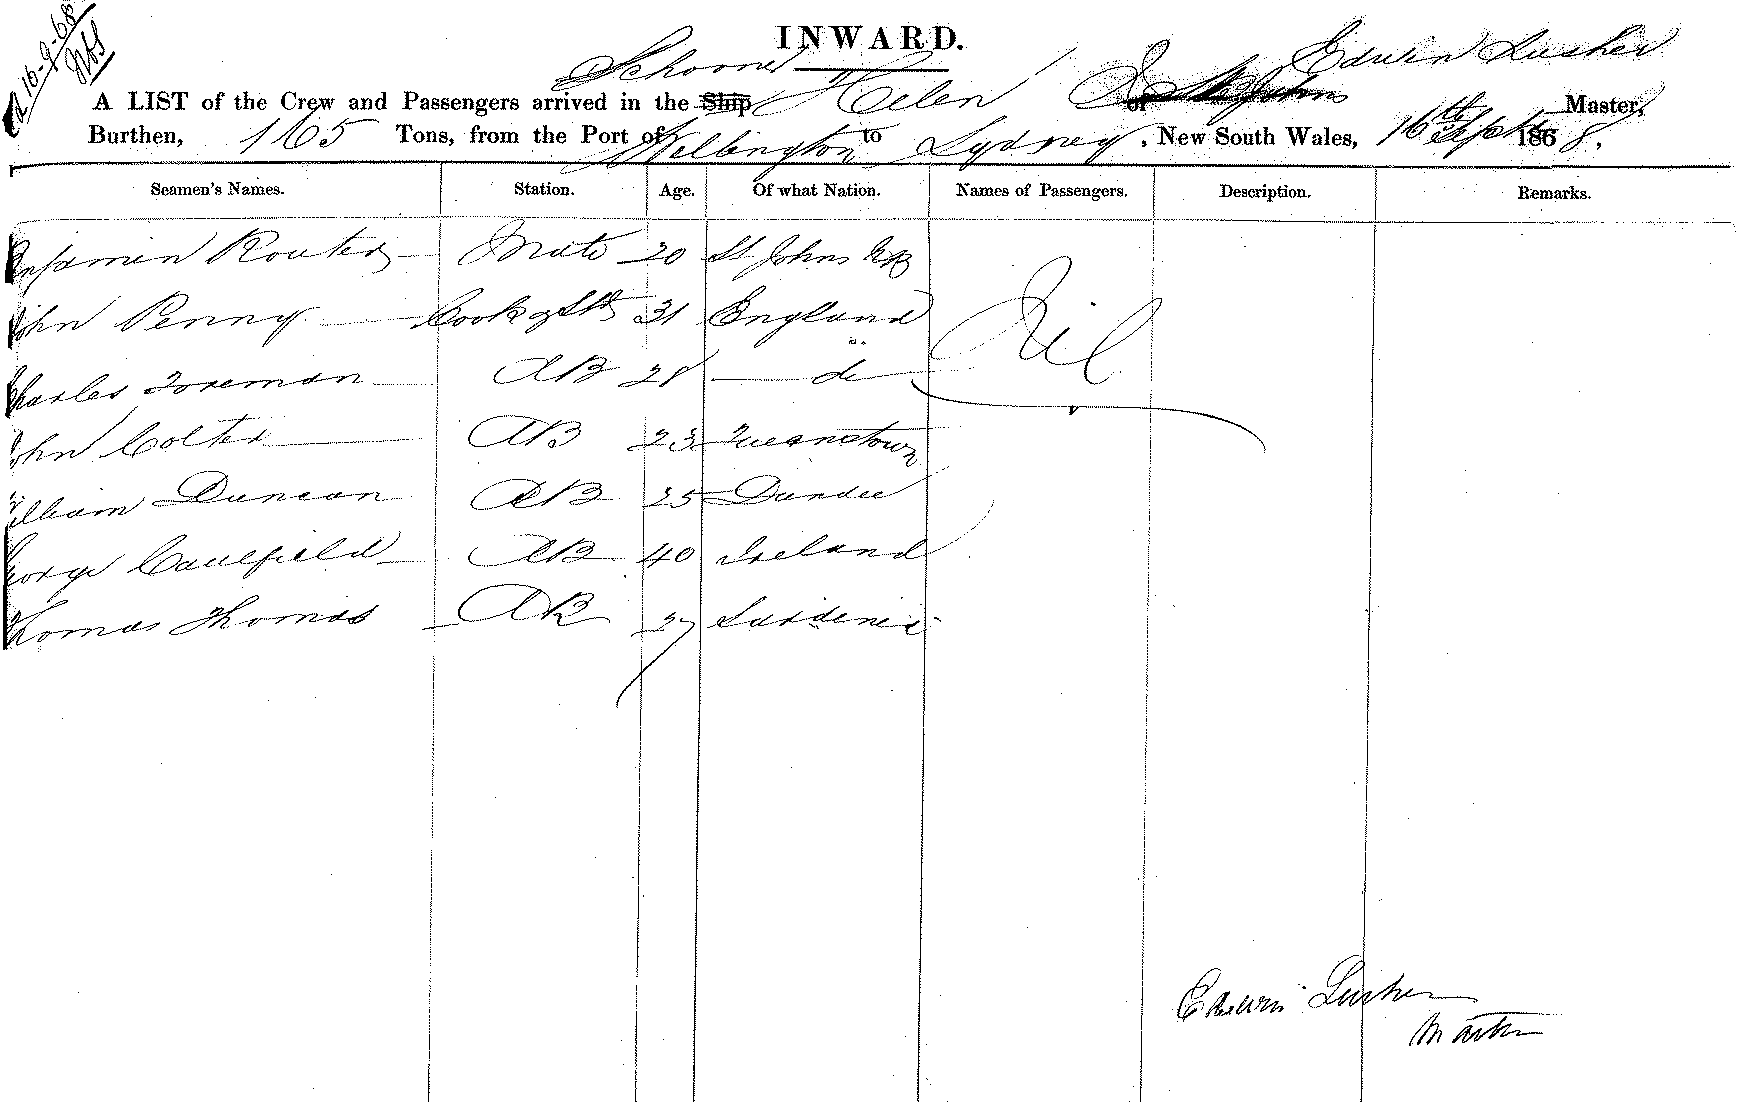 16-9-68
INWARD.
Schooner Edwin Lusher
A LIST of the Crew and Passengers arrived in the Ship Helen of St Johns Master,
Burthen, 165 Tons, from the Port of Wellington to Sydney, New South Wales, 16th Sept 1868.
Seamen's Names. Station. Age. Of what Nation. Names of Passengers. Description. Remarks.
Benjamin Router Mate 20 St Johns NB
John Penny Cook & Std 31 England Nil
Charles Foreman AB 28 do
John Colter AB 23 Queenstown
William Duncan AB 25 Dundee
George Caulfield AB 40 Ireland
Thomas Thomas AB 27 Sardenia
Edwin Lusher
Master